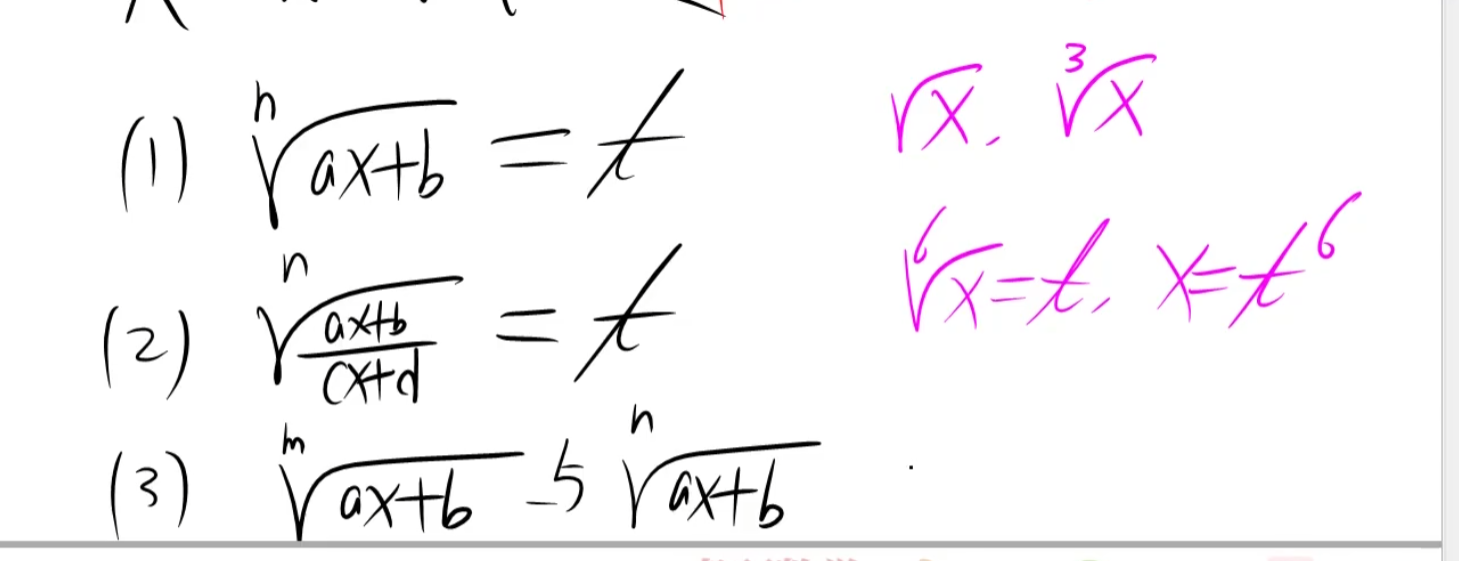 (1) ⁿ√(ax+b) = t
(2) ⁿ√((ax+b)/(cx+d)) = t
(3) ᵐ√(ax+b) 与 ⁿ√(ax+b)
√x, ³√x
⁶√x = t, x = t⁶